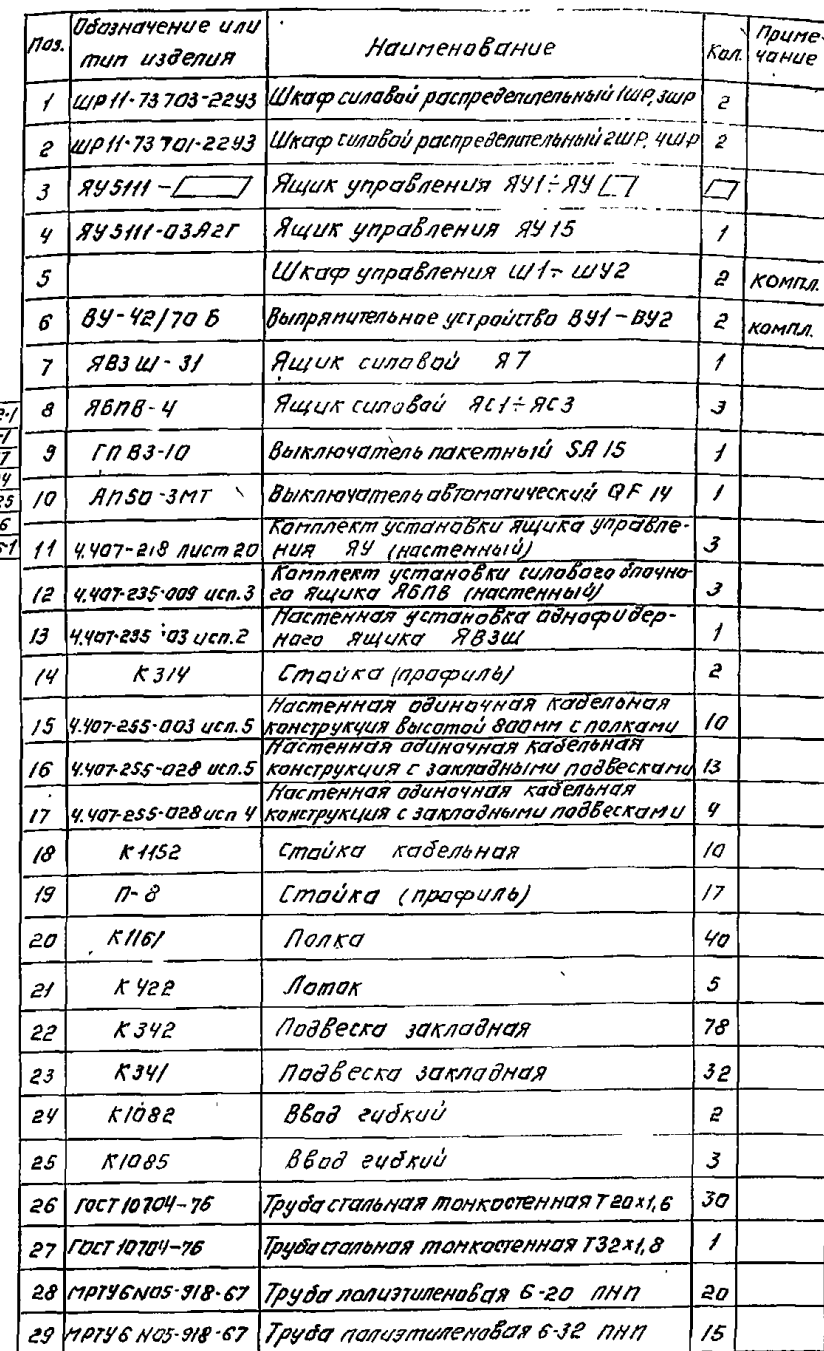 Поз. Обозначение или тип изделия Наименование Кол. Приме-чание
1 ШР11-73703-22У3 Шкаф силовой распределительный 1ШР, 3ШР 2
2 ШР11-73701-22У3 Шкаф силовой распределительный 2ШР, 4ШР 2
3 ЯУ5111- Ящик управления ЯУ1÷ЯУ
4 ЯУ5111-03А2Г Ящик управления ЯУ15 1
5 Шкаф управления Ш1÷ШУ2 2 компл.
6 ВУ-42/70 Б Выпрямительное устройство ВУ1-ВУ2 2 компл.
7 ЯВЗШ-31 Ящик силовой Я7 1
8 ЯБПВ-4 Ящик силовой ЯС1÷ЯС3 3
9 ГПВ3-10 Выключатель пакетный SA 15 1
10 АП50-3МТ Выключатель автоматический QF 14 1
Комплект установки ящика управле-
11 4.407-218 лист 20 ния ЯУ (настенный) 3
Комплект установки силового блочно-
12 4.407-235-009 исп.3 го ящика ЯБПВ (настенный) 3
Настенная установка однофидер-
13 4.407-235 03 исп.2 ного ящика ЯВЗШ 1
14 К314 Стойка (профиль) 2
Настенная одиночная кабельная
15 4.407-255-003 исп.5 конструкция высотой 800мм с полками 10
Настенная одиночная кабельная
16 4.407-255-028 исп.5 конструкция с закладными подвесками 13
Настенная одиночная кабельная
17 4.407-255-028 исп 4 конструкция с закладными подвесками 4
18 К1152 Стойка кабельная 10
19 П-8 Стойка (профиль) 17
20 К1161 Полка 40
21 К422 Лоток 5
22 К342 Подвеска закладная 78
23 К341 Подвеска закладная 32
24 К1082 Ввод гибкий 2
25 К1085 Ввод гибкий 3
26 ГОСТ 10704-76 Труба стальная тонкостенная Т20х1,6 30
27 ГОСТ 10704-76 Труба стальная тонкостенная Т32х1,8 1
28 МРТУ6 N05-918-67 Труба полиэтиленовая 6-20 ПНП 20
29 МРТУ6 N05-918-67 Труба полиэтиленовая 6-32 ПНП 15